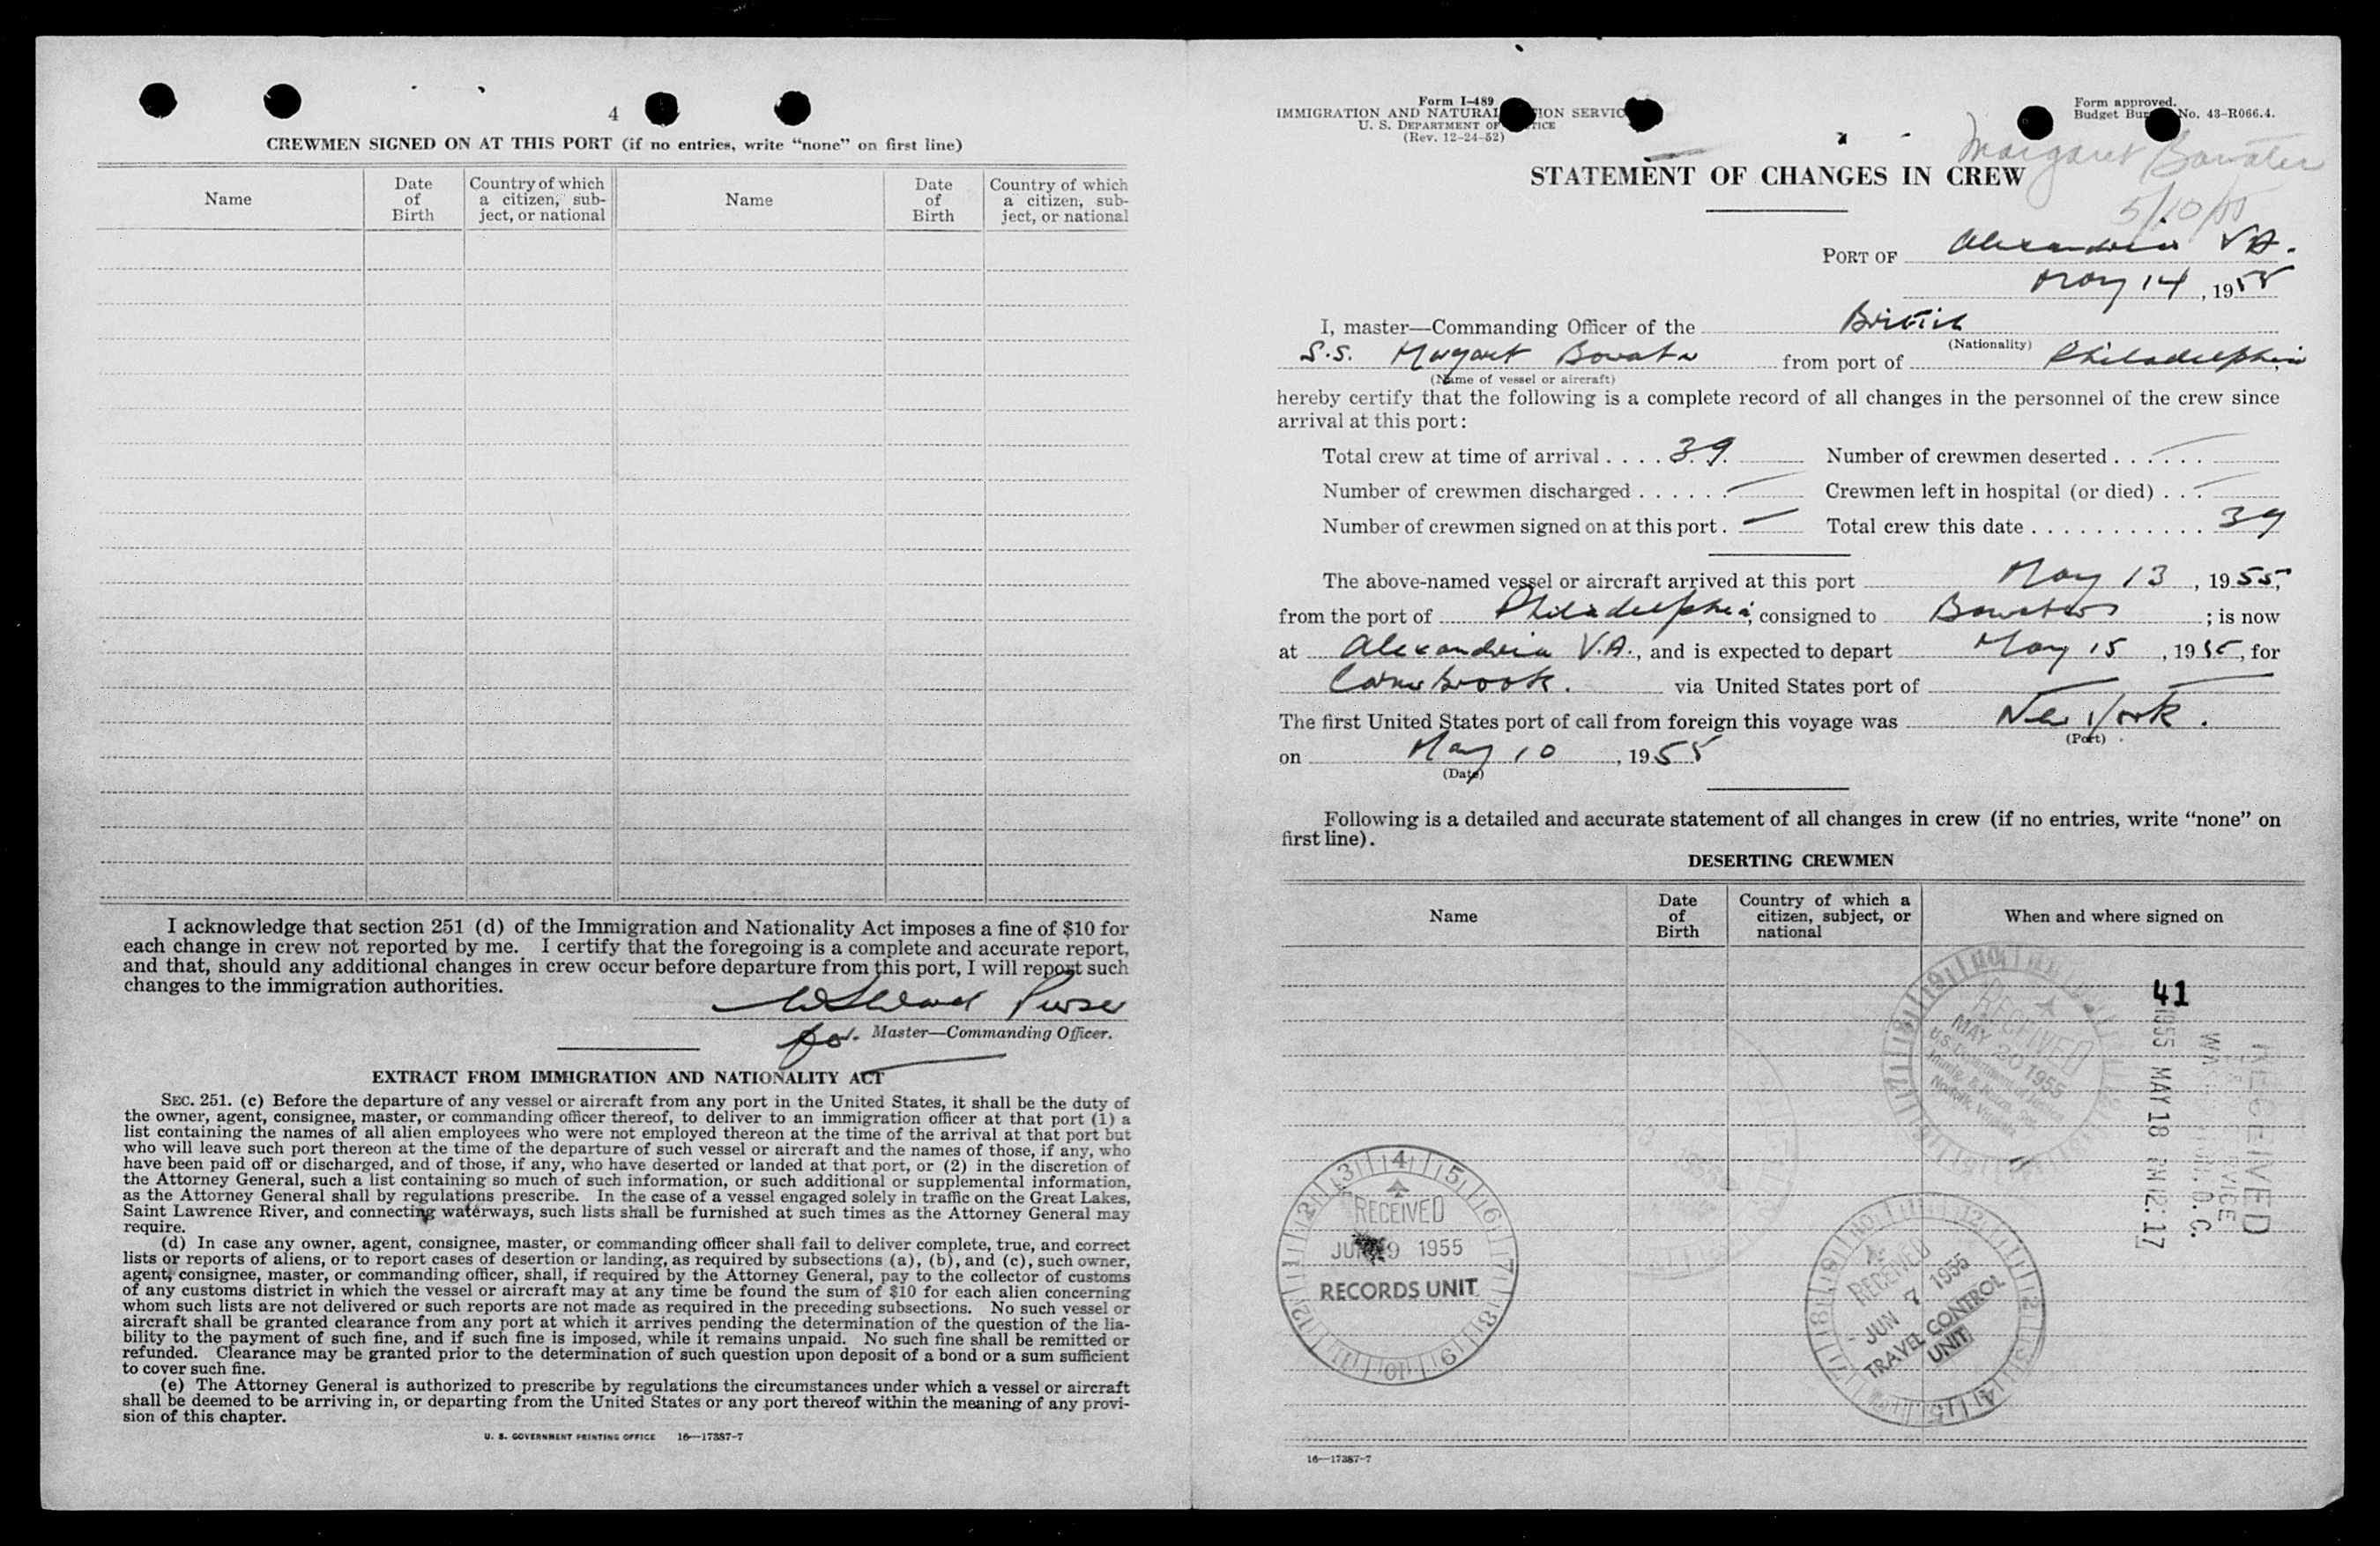 4
CREWMEN SIGNED ON AT THIS PORT (if no entries, write “none” on first line)
Name
Date of Birth
Country of which a citizen, sub-ject, or national
Name
Date of Birth
Country of which a citizen, sub-ject, or national
I acknowledge that section 251 (d) of the Immigration and Nationality Act imposes a fine of $10 for
each change in crew not reported by me. I certify that the foregoing is a complete and accurate report,
and that, should any additional changes in crew occur before departure from this port, I will report such
changes to the immigration authorities.
Purser
for. Master—Commanding Officer.
EXTRACT FROM IMMIGRATION AND NATIONALITY ACT
SEC. 251. (c) Before the departure of any vessel or aircraft from any port in the United States, it shall be the duty of
the owner, agent, consignee, master, or commanding officer thereof, to deliver to an immigration officer at that port (1) a
list containing the names of all alien employees who were not employed thereon at the time of the arrival at that port but
who will leave such port thereon at the time of the departure of such vessel or aircraft and the names of those, if any, who
have been paid off or discharged, and of those, if any, who have deserted or landed at that port, or (2) in the discretion of
the Attorney General, such a list containing so much of such information, or such additional or supplemental information,
as the Attorney General shall by regulations prescribe. In the case of a vessel engaged solely in traffic on the Great Lakes,
Saint Lawrence River, and connecting waterways, such lists shall be furnished at such times as the Attorney General may
require.
(d) In case any owner, agent, consignee, master, or commanding officer shall fail to deliver complete, true, and correct
lists or reports of aliens, or to report cases of desertion or landing, as required by subsections (a), (b), and (c), such owner,
agent, consignee, master, or commanding officer, shall, if required by the Attorney General, pay to the collector of customs
of any customs district in which the vessel or aircraft may at any time be found the sum of $10 for each alien concerning
whom such lists are not delivered or such reports are not made as required in the preceding subsections. No such vessel or
aircraft shall be granted clearance from any port at which it arrives pending the determination of the question of the lia-
bility to the payment of such fine, and if such fine is imposed, while it remains unpaid. No such fine shall be remitted or
refunded. Clearance may be granted prior to the determination of such question upon deposit of a bond or a sum sufficient
to cover such fine.
(e) The Attorney General is authorized to prescribe by regulations the circumstances under which a vessel or aircraft
shall be deemed to be arriving in, or departing from the United States or any port thereof within the meaning of any provi-
sion of this chapter.
U. S. GOVERNMENT PRINTING OFFICE 16—17387-7
Form I-489
IMMIGRATION AND NATURALIZATION SERVICE
U. S. DEPARTMENT OF JUSTICE
(Rev. 12-24-52)
Form approved.
Budget Bureau No. 43-R066.4.
Margaret Bowater
5/10/55
STATEMENT OF CHANGES IN CREW
PORT OF Alexandria VA.
May 14, 1955
I, master—Commanding Officer of the British
(Nationality)
S.S. Margaret Bowater from port of Philadelphia
(Name of vessel or aircraft)
hereby certify that the following is a complete record of all changes in the personnel of the crew since
arrival at this port:
Total crew at time of arrival .... 39. Number of crewmen deserted ...... —
Number of crewmen discharged ...... — Crewmen left in hospital (or died) ... —
Number of crewmen signed on at this port. — Total crew this date ............ 39
The above-named vessel or aircraft arrived at this port May 13, 1955,
from the port of Philadelphia; consigned to Bowaters; is now
at Alexandria V.A., and is expected to depart May 15, 1955, for
Cornerbrook. via United States port of — —
The first United States port of call from foreign this voyage was New York.
(Port)
on May 10, 1955
(Date)
Following is a detailed and accurate statement of all changes in crew (if no entries, write “none” on
first line).
DESERTING CREWMEN
Name
Date of Birth
Country of which a citizen, subject, or national
When and where signed on
RECEIVED
MAY 20 1955
Norfolk, Virginia
41
1955 MAY 18 PM 12:17
RECEIVED
RECEIVED
JUN 9 1955
RECORDS UNIT
RECEIVED
JUN 7 1955
TRAVEL CONTROL
UNIT
16—17387-7